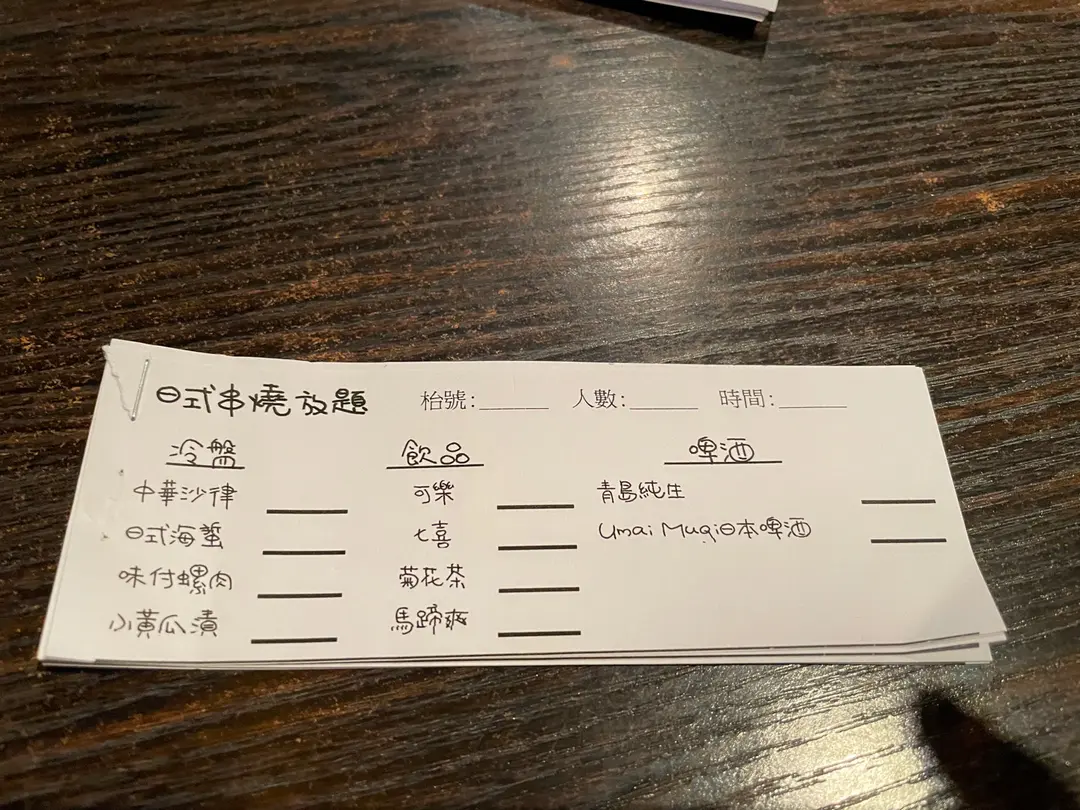 日式串燒放題 枱號:______ 人數:______ 時間:______
冷盤 飲品 啤酒
中華沙律 ______ 可樂 ______ 青島純生 ______
日式海蜇 ______ 七喜 ______ Umai Mugi日本啤酒 ______
味付螺肉 ______ 菊花茶 ______
小黃瓜漬 ______ 馬蹄爽 ______